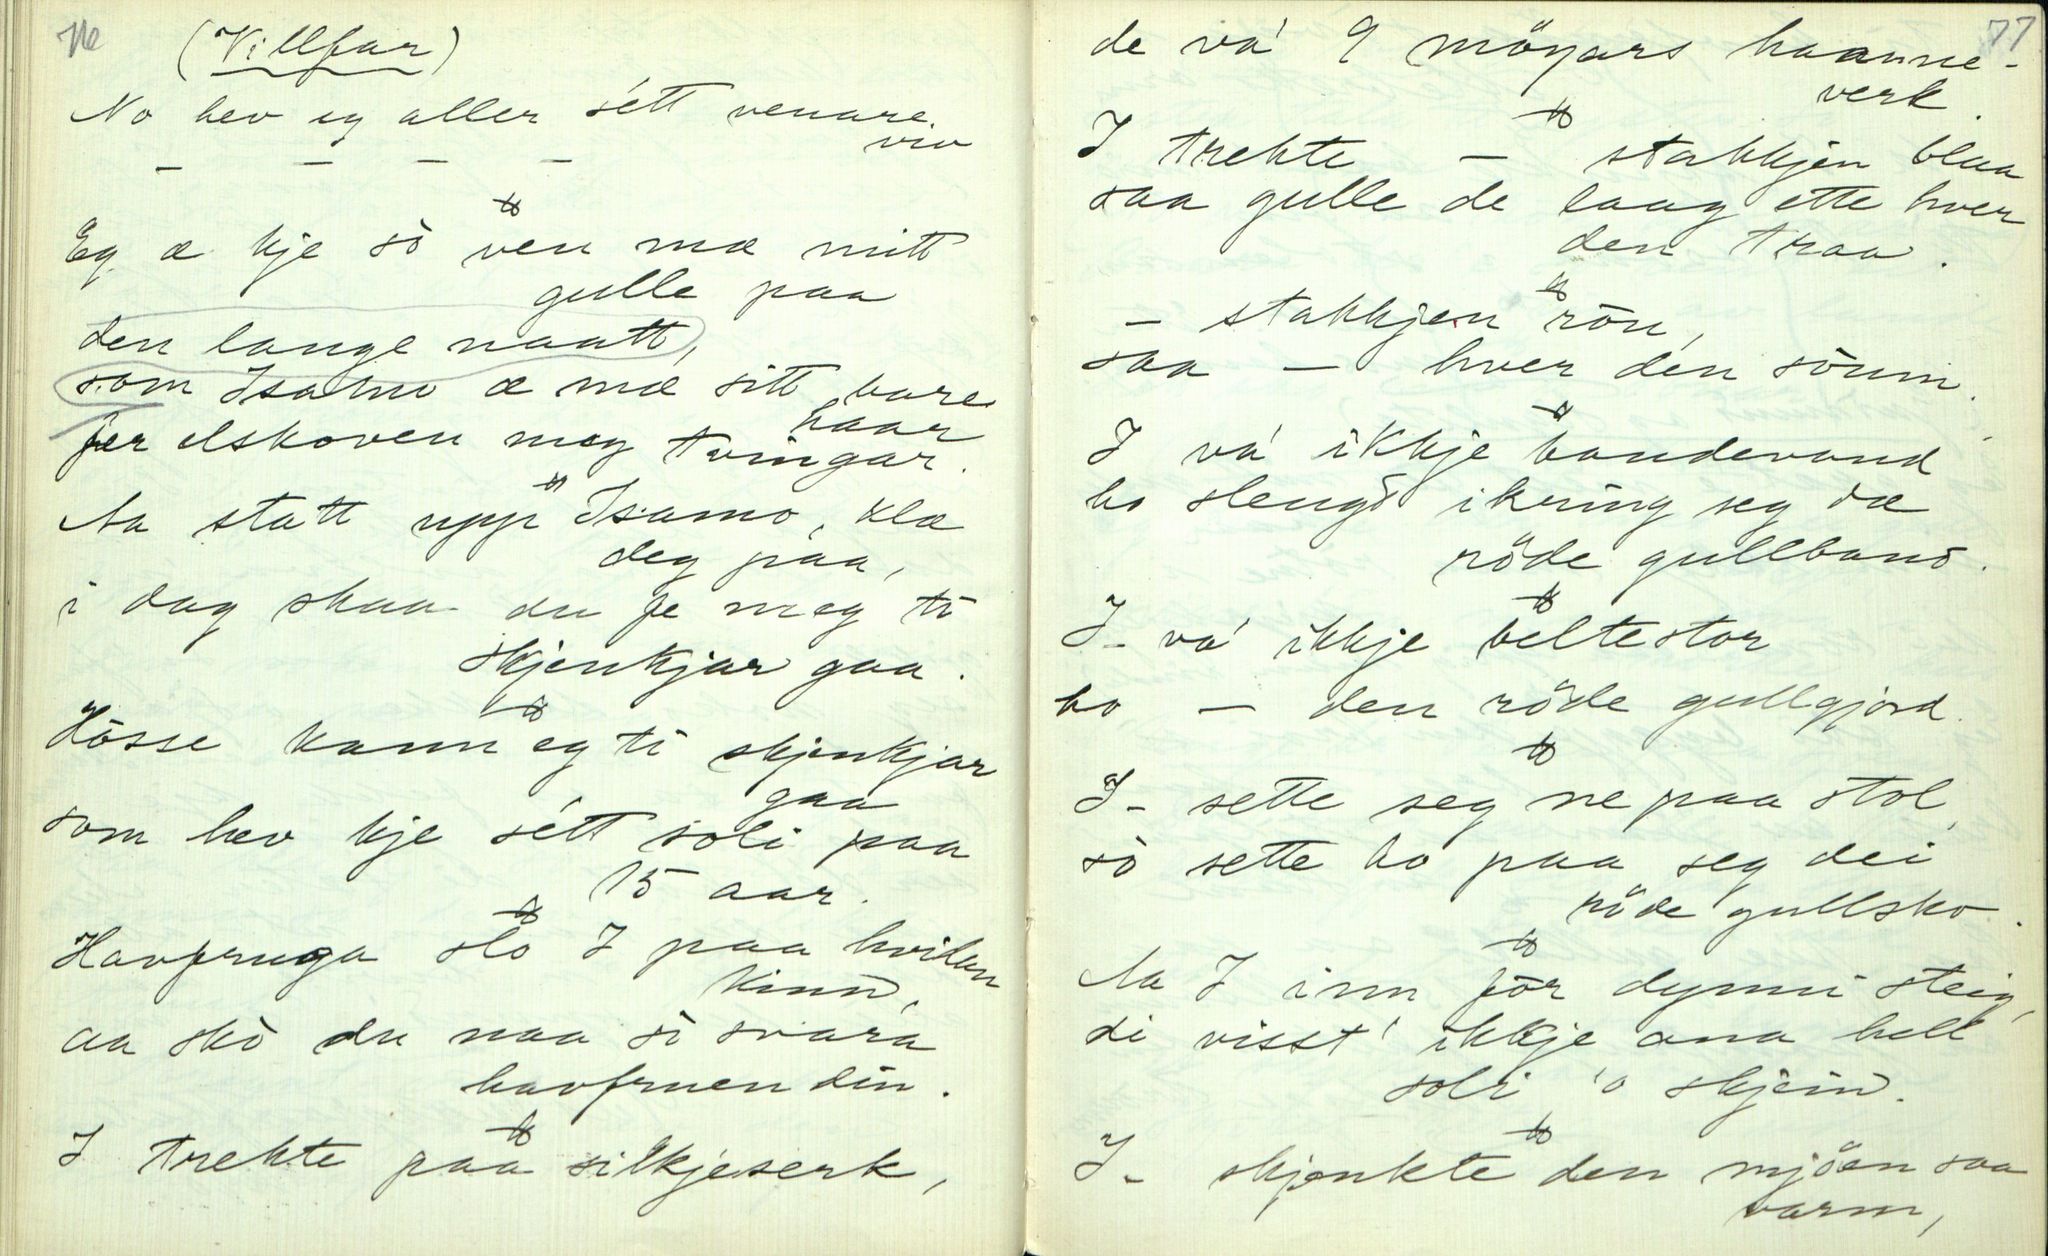 76
(Villfar)
No hev eg aller sétt venare
viv
— — — —
Eg æ kje so ven mæ mitt
gulle paa
den lange naatt,
som Isamo æ mæ sitt bare
haar
fer elskoven meg tvingar.
Aa statt upp Isamo, klæ
deg paa,
i dag skaa du fe meg ti
skjenkjar gaa.
Hòsse kann eg ti skjenkjar
gaa
som hev kje sétt soli paa
15 aar.
Havfruga slo I paa hvitan
kinn,
aa sko du naa so svara
havfruen din.
I trekte paa silkjeserk,
77
de va' 9 möyars haanne-
verk.
I trekte — stakkjen blaa
saa gulle de laag ette hver
den traa.
— stakkjen röu,
saa — hver den söum.
I va' ikkje bandevand
ho slengd ikring seg dæ
röde gullband.
I- va' ikkje beltestor
ho — den röde gullgjord.
I- sette seg ne paa stol,
so sette ho paa seg dei
röde gullsko.
Aa I innför dynni steig,
di visst' ikkje ana hell
soli 'o skjein.
I- skjenkte den mjöen saa
varm,